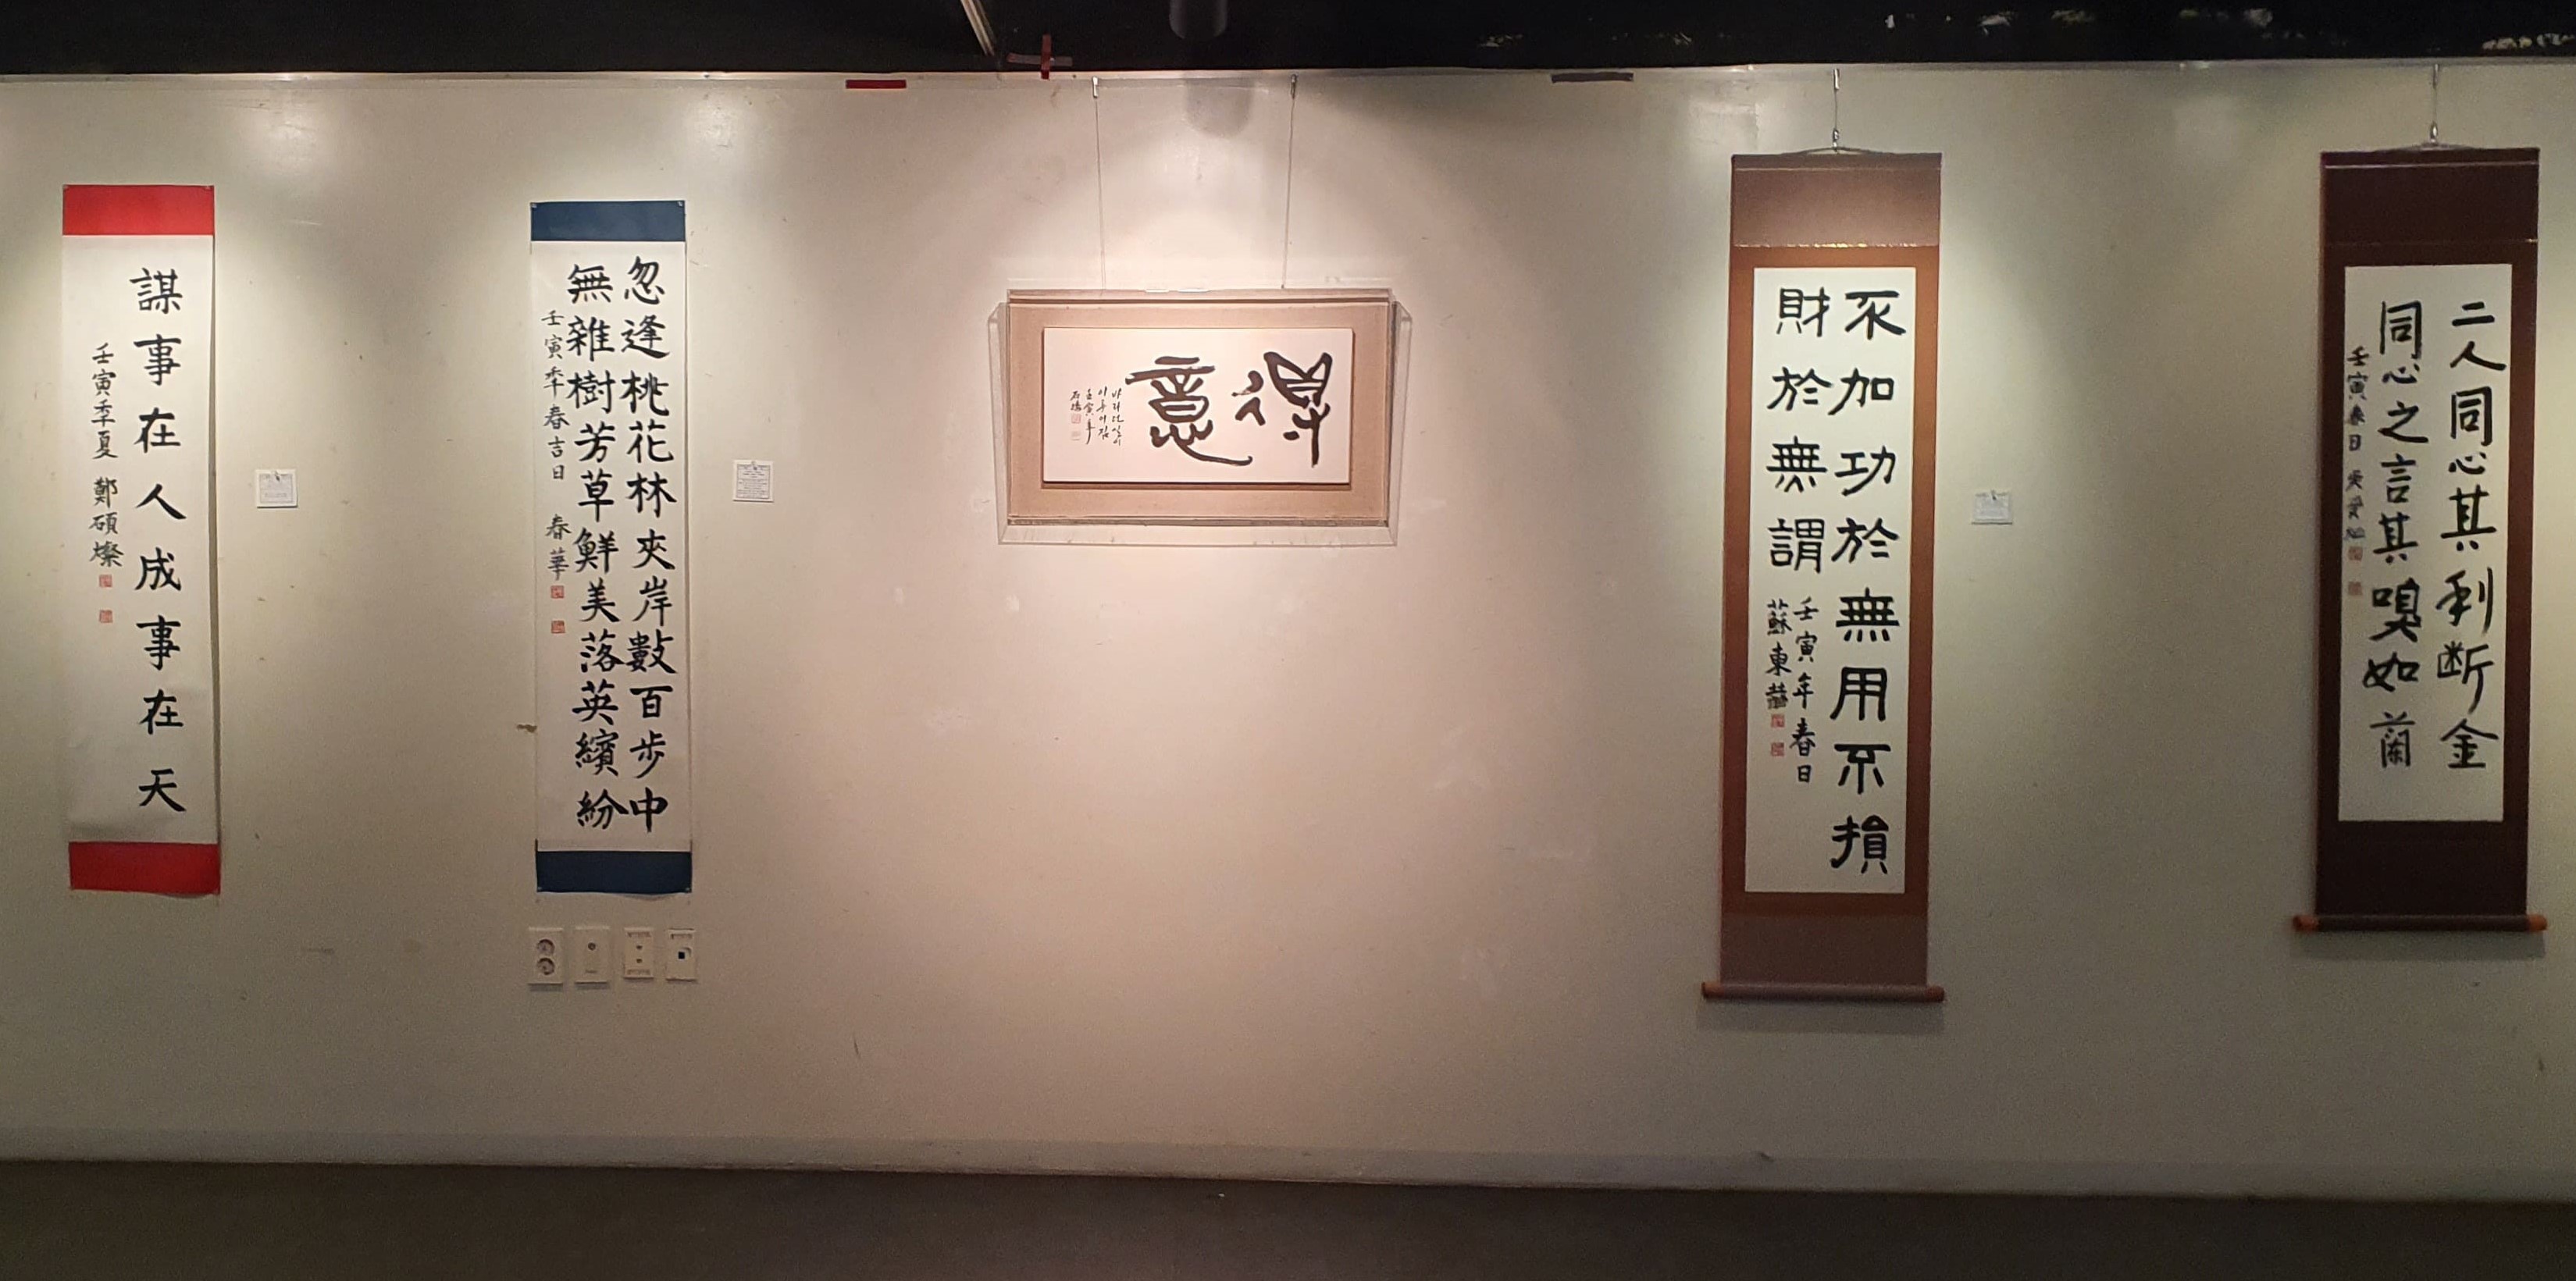 謀事在人成事在天
壬寅季夏 鄭碩燦
忽逢桃花林夾岸數百步中
無雜樹芳草鮮美落英繽紛
壬寅季春吉日 春華
得意
바라던 일이
이루어짐
壬寅年
不加功於無用不損
財於無謂
壬寅年春日
蘇東赫
二人同心其利断金
同心之言其嗅如蘭
壬寅春日